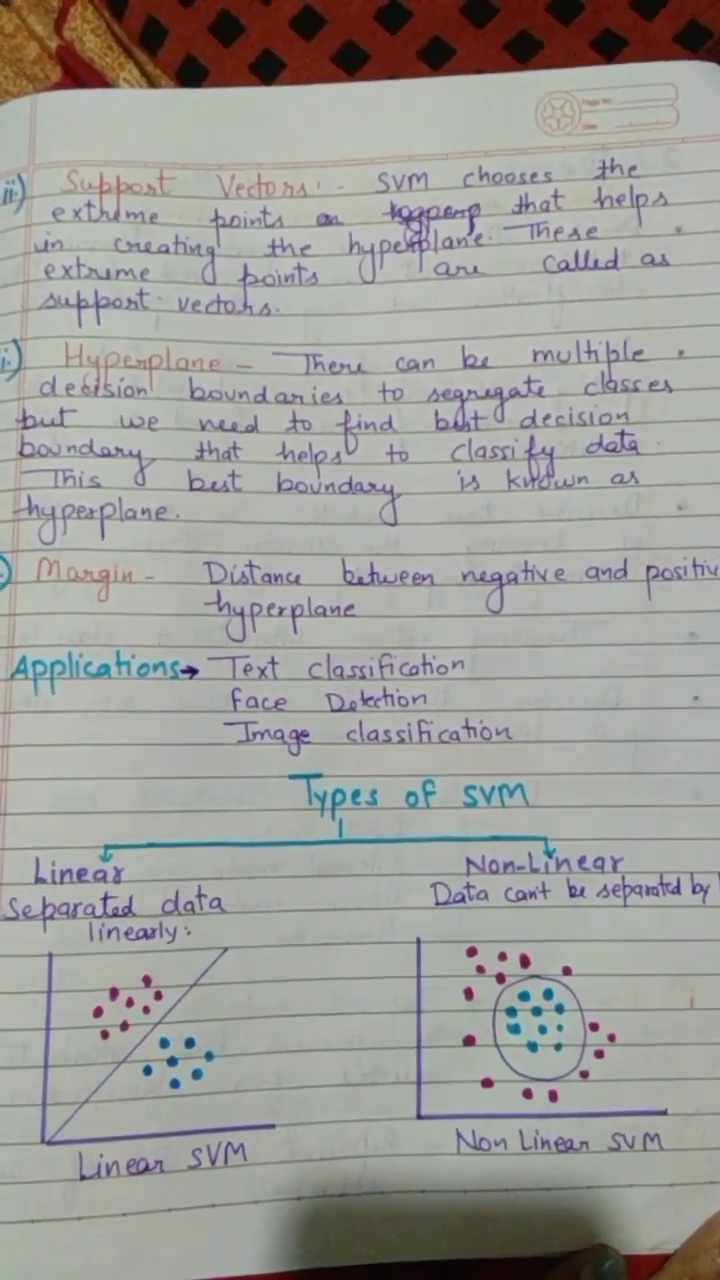 ii) Support Vectors:- SVM chooses the
extreme points on that helps
in creating the hyperplane. These
extreme points are called as
support vectors.
i.) Hyperplane - There can be multiple
decision boundaries to segregate classes
but we need to find best decision
boundary that helps to classify data.
This best boundary is known as
hyperplane.
Margin - Distance between negative and positiv
hyperplane
Applications → Text classification
Face Detection
Image classification
Types of SVM
Linear
Separated data
linearly:
Non-Linear
Data can't be separated by
Linear SVM
Non Linear SVM